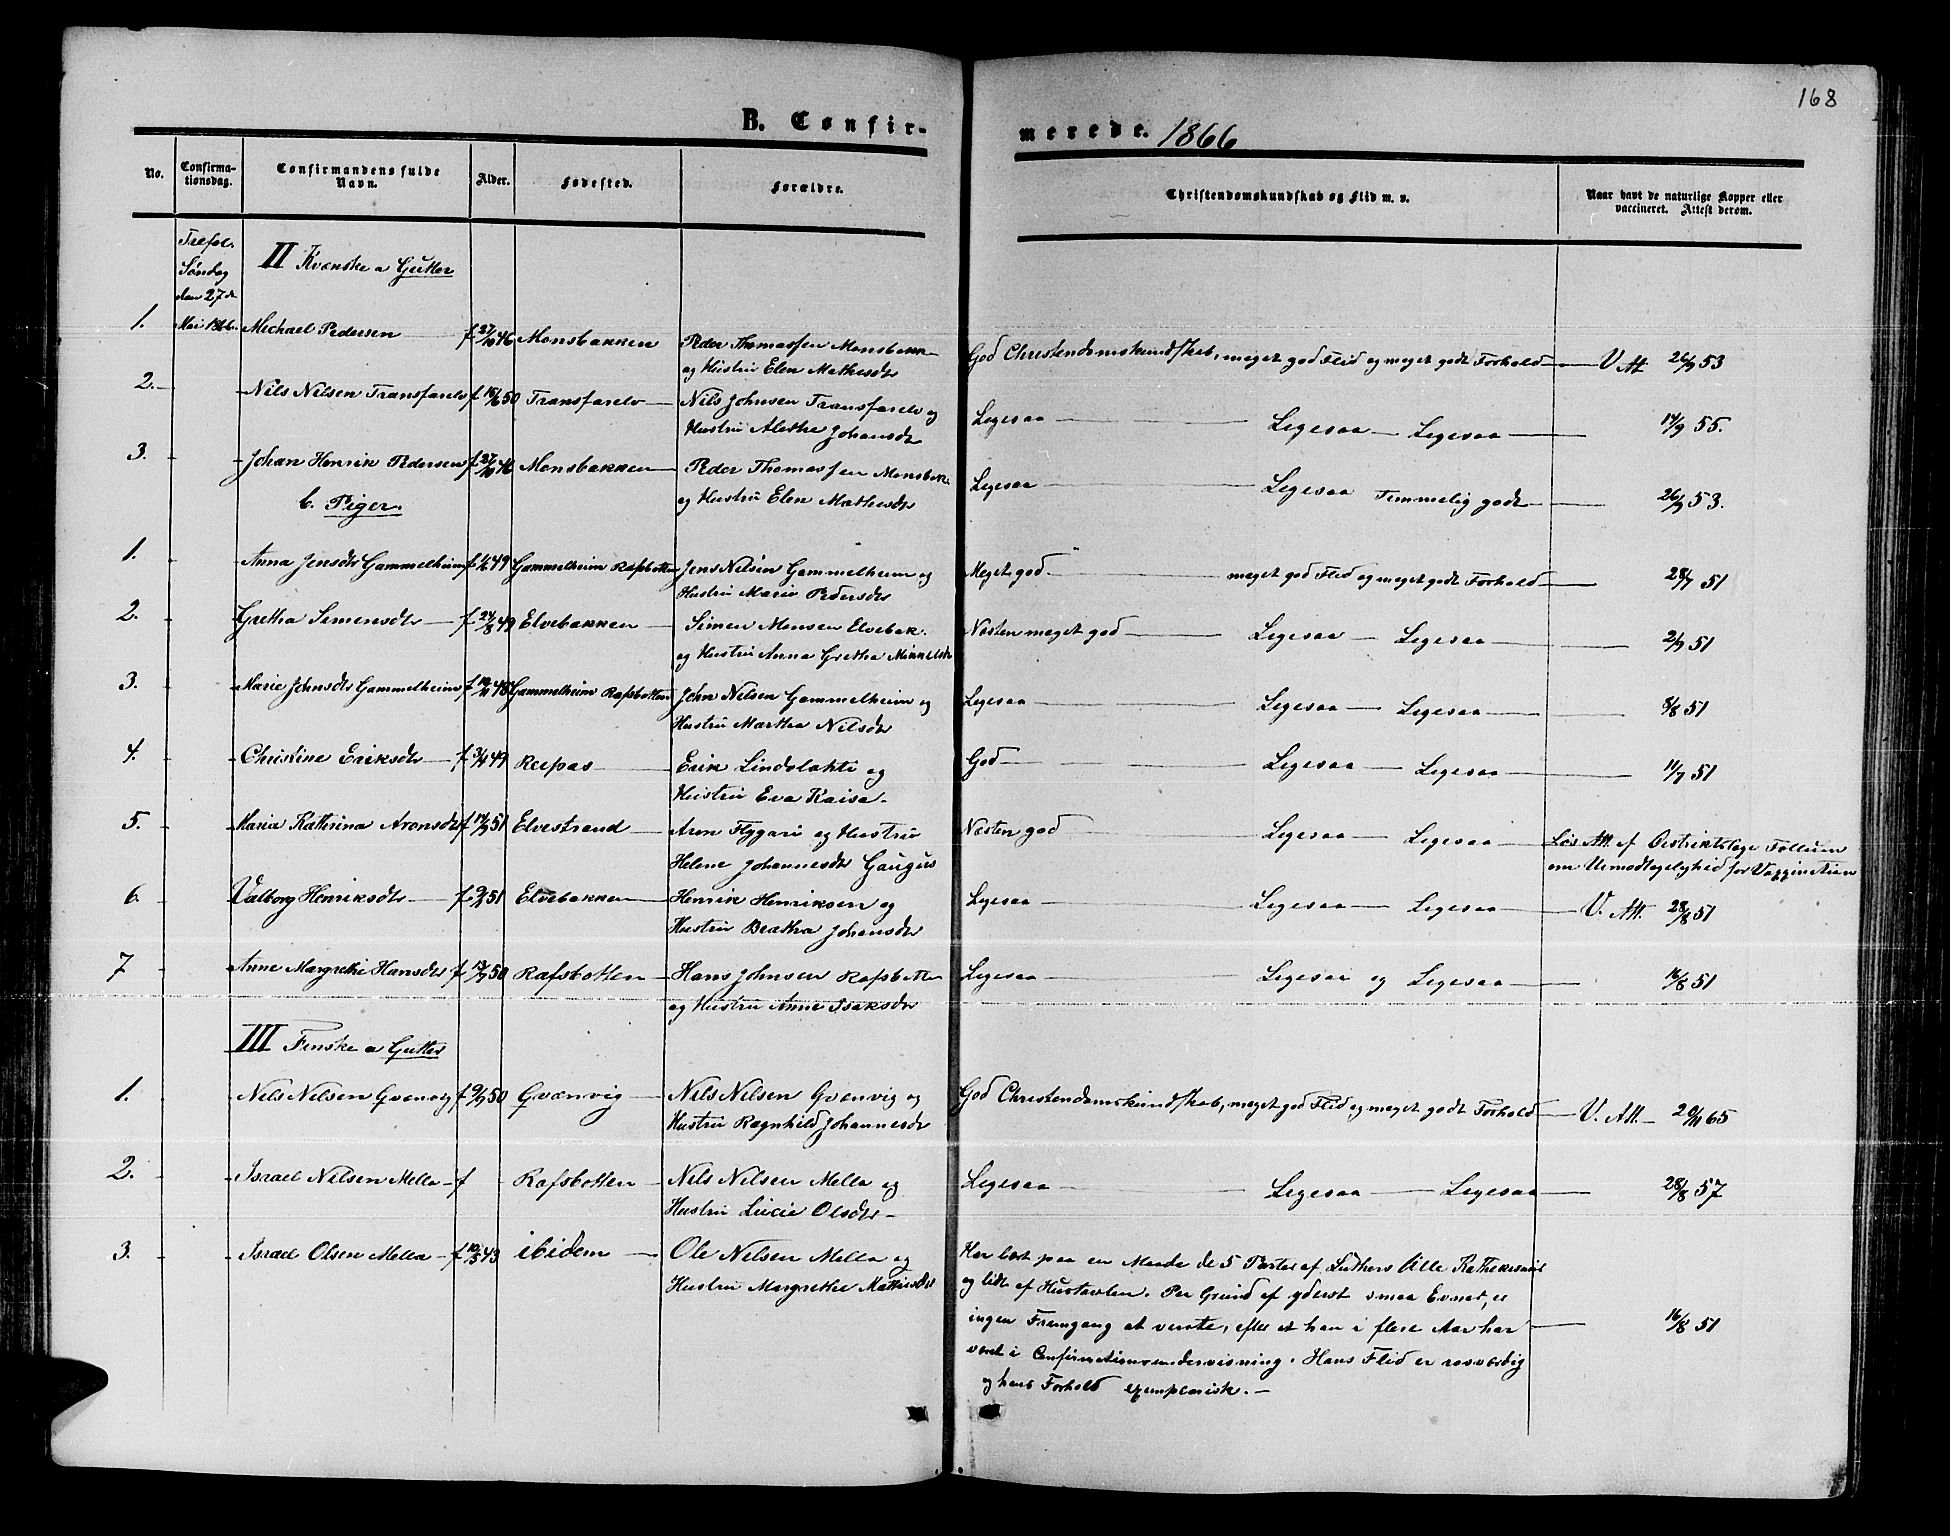 168
B. Confir-
merede. 1866
No.
Confirma-
tionsdag.
Confirmandens fulde
Navn.
Alder.
Fødested.
Forældre.
Christendomskundskab og Flid m. v.
Naar havt de naturlige Kopper eller
vaccineret. Attest derom.
Trefol.
Søndag
den 27de
Mai 1866.
II Kvænske a Gutter
1. Mechael Pedersen f 27/10 46 Monsbakken Peder Thomassen Monsbakk
og Hustru Elen Mathisdr God Christendomskundskab, meget god Flid og meget godt Forhold V. Att. 26/9 53
2. Nils Nilsen Transfarelv f 15/6 50 Transfarelv Nils Johnsen Transfarelv og
Hustru Alethe Johansdr Ligesaa Ligesaa Ligesaa 17/9 55.
3. Johan Henrik Pedersen f 27/10 46 Monsbakken Peder Thomassen Monsbak.
og Hustru Elen Mathisdr Ligesaa Ligesaa Temmelig godt 26/9 53.
b. Piger.
1. Anna Jensdr Gammelheim f 49 Gammelheim Rafsbotten Jens Nilsen Gammelheim og
Hustru Marie Pedersdr Meget god meget god Flid og meget godt Forhold 28/7 51
2. Gretha Simensdr f 24/8 49 Elvebakken Simen Monsen Elvebak.
og Hustru Anna Gretha Mikkelsdr Næsten meget god Ligesaa Ligesaa 2/9 51
3. Marie Johnsdr Gammelheim f 10/11 48 Gammelheim Rafsbotten John Nilsen Gammelheim og
Hustru Martha Nilsdr Ligesaa Ligesaa Ligesaa 8/8 51
4. Christine Eriksdr f 3/4 49 Reipas Erik Lindolahti og
Hustru Eva Kaisa God Ligesaa Ligesaa 11/7 51
5. Maria Kathrina Aronsdr f 51 Elvestrand Aron Flygari og Hustru
Helene Johannesdr Gaugus Næsten god Ligesaa Ligesaa Løs Att. af Distriktslæge Follum
om Uimodtagelighed for Vaccination
6. Valborg Henriksdr f 51 Elvebakken Henrik Henriksen og
Hustru Beatha Johansdr Ligesaa Ligesaa Ligesaa V. Att. 28/8 51
7 Anne Margrethe Hansdr f 50 Rafsbotten Hans Johnsen Rafsbotten
og Hustru Anne Isaksdr Ligesaa Ligesaa og Ligesaa 16/8 51
III Finske a Gutter
1. Nils Nilsen Qvænvig f 9/7 50 Qvænvig Nils Nilsen Qvænvig og
Hustru Ragnhild Johannesdr God Christendomskundskab, meget god Flid og meget godt Forhold V. Att. 20/11 65
2. Israel Nilsen Mella f Rafsbotten Nils Nilsen Mella og
Hustru Lucie Olsdr Ligesaa Ligesaa Ligesaa 28/8 57
3. Israel Olsen Mella f 10/3 43 ibidem Ole Nilsen Mella og
Hustru Margrethe Mathisdr Har lært paa en Maade de 5 Parter af Luthers lille Kathekismus
og lidt af Hustavlen. Paa Grund af yderst smaa Evner, er
ingen Fremgang at vente, efter at han i flere Aar har
været i Confirmationsundervisning. Hans Flid er rosværdig
og hans Forhold exemplarisk. 16/8 51